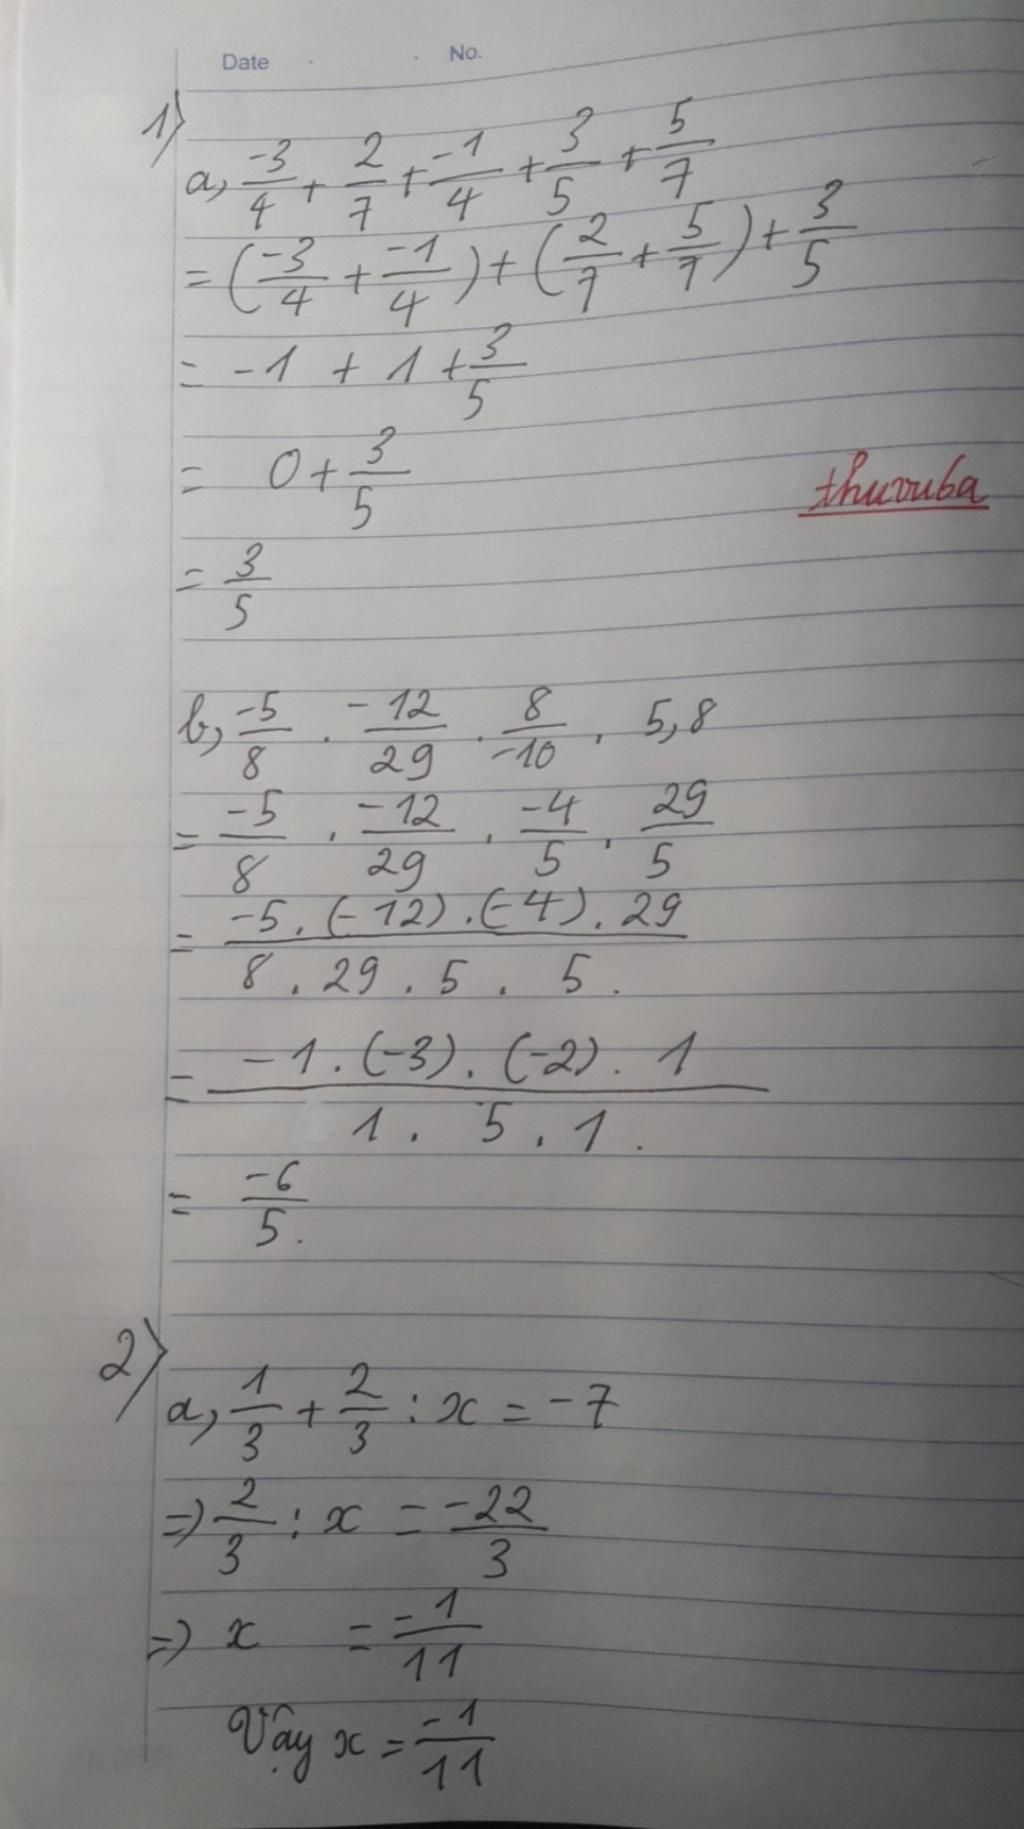 Date No.
1)
a, -3/4 + 2/7 + -1/4 + 3/5 + 5/7
= (-3/4 + -1/4) + (2/7 + 5/7) + 3/5
= -1 + 1 + 3/5
= 0 + 3/5
thuvuba
= 3/5
b, -5/8 . -12/29 . 8/-10 . 5,8
= -5/8 . -12/29 . -4/5 . 29/5
= -5 . (-12) . (-4) . 29 / 8 . 29 . 5 . 5 .
= -1 . (-3) . (-2) . 1 / 1 . 5 . 1 .
= -6/5 .
2)
a, 1/3 + 2/3 : x = -7
=> 2/3 : x = -22/3
=> x = -1/11
Vậy x = -1/11